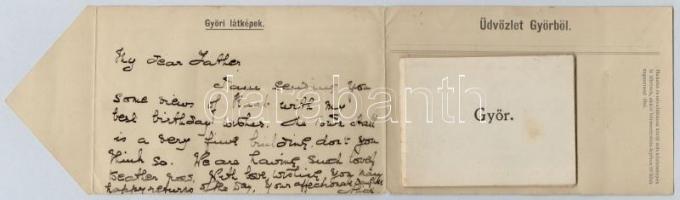 Győri látképek.
My dear Father
I am sending you
some views of with my
best birthday wishes. The town hall
is a very fine building, don't you
think so. We are having such lovely
weather now. With love wishing you many
happy returns of the day, Your affectionate
Üdvözlet Győrből.
Győr.
darabanth